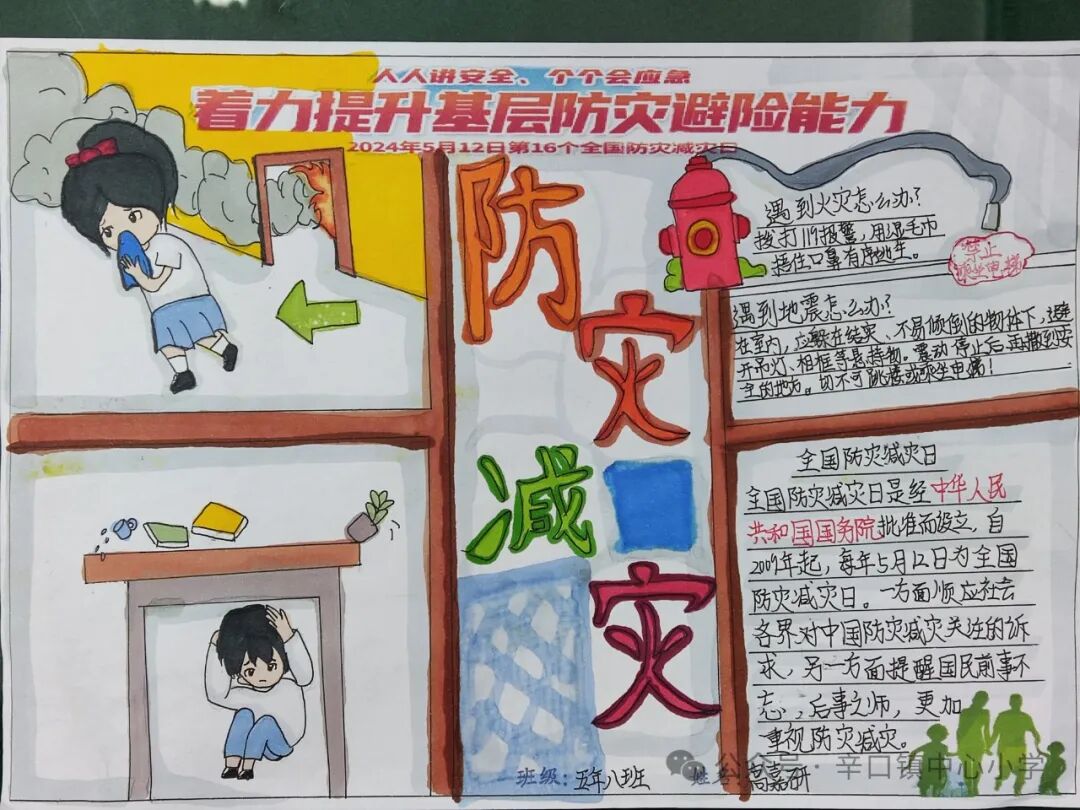 人人讲安全、个个会应急
着力提升基层防灾避险能力
2024年5月12日第16个全国防灾减灾日
防
灾
减
灾
遇到火灾怎么办?
拨打119报警,用湿毛巾
捂住口鼻有序逃生。
禁止
乘坐电梯
遇到地震怎么办?
在室内,应躲在结实、不易倾倒的物体下,避
开吊灯、相框等悬挂物。震动停止后,再撤到安
全的地方。切不可跳楼或乘坐电梯!
全国防灾减灾日
全国防灾减灾日是经中华人民
共和国国务院批准而设立,自
2009年起,每年5月12日为全国
防灾减灾日。一方面顺应社会
各界对中国防灾减灾关注的诉
求,另一方面提醒国民前事不
忘,后事之师,更加
重视防灾减灾。
班级:五年八班 姓名:嘉研
公众号·辛口镇中心小学